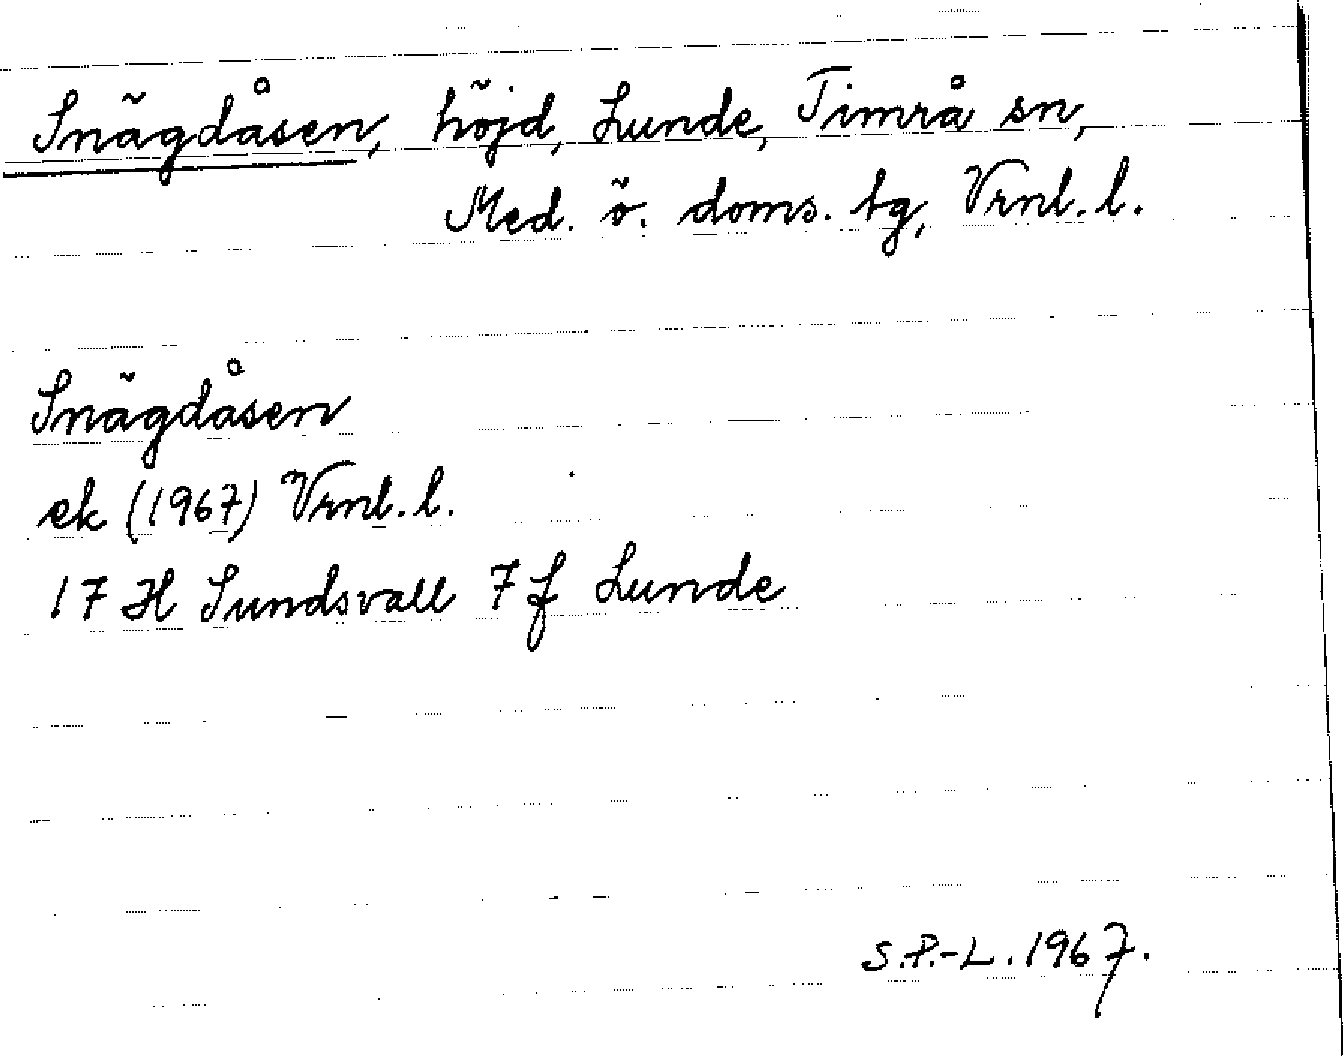 Snägdåsen, höjd, Lunde, Timrå sn,
Med. ö. doms. tg, Vrnl. l.
Snägdåsen
ek (1967) Vrnl. l.
17 H Sundsvall 7 f Lunde
S.P.-L. 1967.